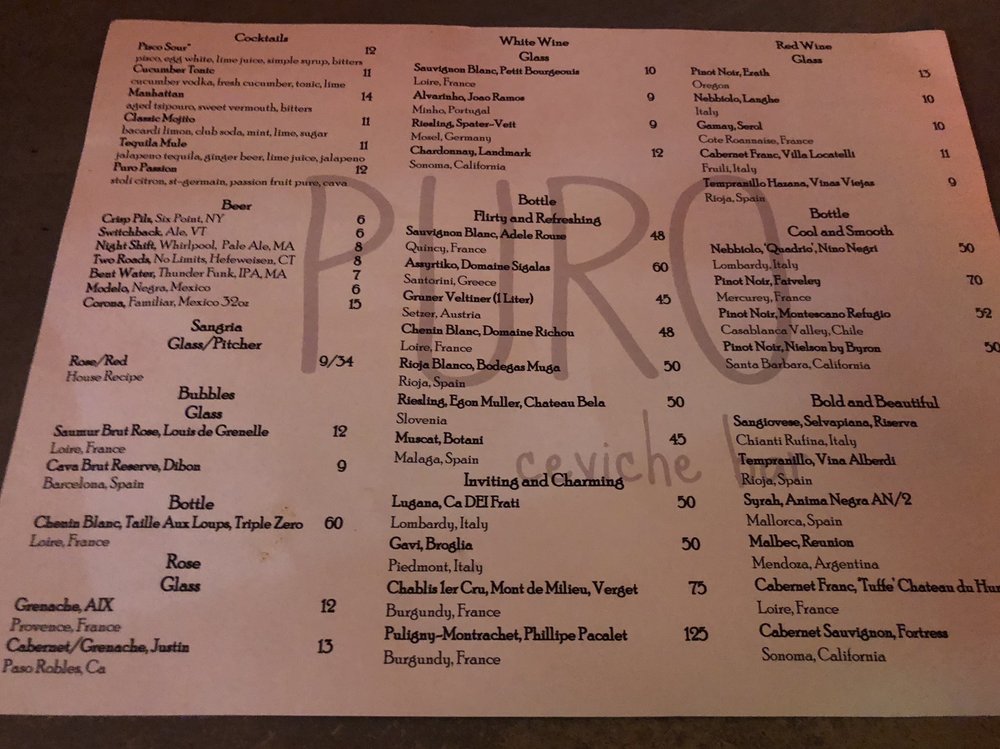 Cocktails
Pisco Sour* 12
pisco, egg white, lime juice, simple syrup, bitters
Cucumber Tonic 11
cucumber vodka, fresh cucumber, tonic, lime
Manhattan 14
aged tsipouro, sweet vermouth, bitters
Classic Mojito 11
bacardi limon, club soda, mint, lime, sugar
Tequila Mule 11
jalapeno tequila, ginger beer, lime juice, jalapeno
Puro Passion 12
stoli citron, st-germain, passion fruit pure, cava
Beer
Crisp Pils, Six Point, NY 6
Switchback, Ale, VT 6
Night Shift, Whirlpool, Pale Ale, MA 8
Two Roads, No Limits, Hefeweisen, CT 8
Bent Water, Thunder Funk, IPA, MA 7
Modelo, Negra, Mexico 6
Corona, Familiar, Mexico 32oz 15
Sangria
Glass/Pitcher
Rose/Red 9/34
House Recipe
Bubbles
Glass
Saumur Brut Rose, Louis de Grenelle 12
Loire, France
Cava Brut Reserve, Dibon 9
Barcelona, Spain
Bottle
Chenin Blanc, Taille Aux Loups, Triple Zero 60
Loire, France
Rose
Glass
Grenache, AIX 12
Provence, France
Cabernet/Grenache, Justin 13
Paso Robles, Ca
White Wine
Glass
Sauvignon Blanc, Petit Bourgeois 10
Loire, France
Alvarinho, Joao Ramos 9
Minho, Portugal
Riesling, Spater-Veit 9
Mosel, Germany
Chardonnay, Landmark 12
Sonoma, California
Bottle
Flirty and Refreshing
Sauvignon Blanc, Adele Rouze 48
Quincy, France
Assyrtiko, Domaine Sigalas 60
Santorini, Greece
Gruner Veltiner (1 Liter) 45
Setzer, Austria
Chenin Blanc, Domaine Richou 48
Loire, France
Rioja Blanco, Bodegas Muga 50
Rioja, Spain
Riesling, Egon Muller, Chateau Bela 50
Slovenia
Muscat, Botani 45
Malaga, Spain
Inviting and Charming
Lugana, Ca DEI Frati 50
Lombardy, Italy
Gavi, Broglia 50
Piedmont, Italy
Chablis 1er Cru, Mont de Milieu, Verget 75
Burgundy, France
Puligny-Montrachet, Phillipe Pacalet 125
Burgundy, France
Red Wine
Glass
Pinot Noir, Erath 13
Oregon
Nebbiolo, Langhe 10
Italy
Gamay, Serol 10
Cote Roannaise, France
Cabernet Franc, Villa Locatelli 11
Fruili, Italy
Tempranillo Hazana, Vinas Viejas 9
Rioja, Spain
Bottle
Cool and Smooth
Nebbiolo, 'Quadrio', Nino Negri 50
Lombardy, Italy
Pinot Noir, Faiveley 70
Mercurey, France
Pinot Noir, Montescano Refugio 52
Casablanca Valley, Chile
Pinot Noir, Nielson by Byron 50
Santa Barbara, California
Bold and Beautiful
Sangiovese, Selvapiana, Riserva
Chianti Rufina, Italy
Tempranillo, Vina Alberdi
Rioja, Spain
Syrah, Anima Negra AN/2
Mallorca, Spain
Malbec, Reunion
Mendoza, Argentina
Cabernet Franc, 'Tuffe' Chateau du Hur
Loire, France
Cabernet Sauvignon, Fortress
Sonoma, California
PURO
ceviche bar